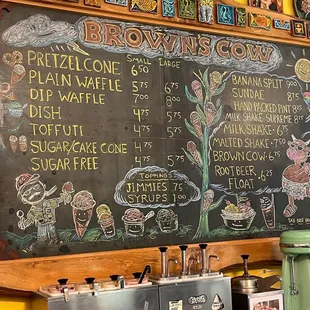 BROWN'S COW
SMALL LARGE
PRETZEL CONE 6.50
PLAIN WAFFLE 5.75 6.75
DIP WAFFLE 7.00 8.00
DISH 4.75 5.75
TOFFUTI 4.75 5.75
SUGAR/CAKE CONE 4.75 5.75
SUGAR FREE 4.75 5.75
TOPPING
JIMMIES .75¢
SYRUPS 1.50
BANANA SPLIT
SUNDAE
HAND PACKED PINT
MILK SHAKE SUPREME
MILK SHAKE
MALTED SHAKE
BROWN COW
ROOT BEER
FLOAT